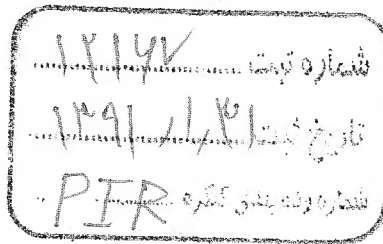 شماره ثبت ۱۲۱۶۷
تاریخ ثبت ۱۳۹۱/۱/۳۱
شماره رده بندی کنگره PIR